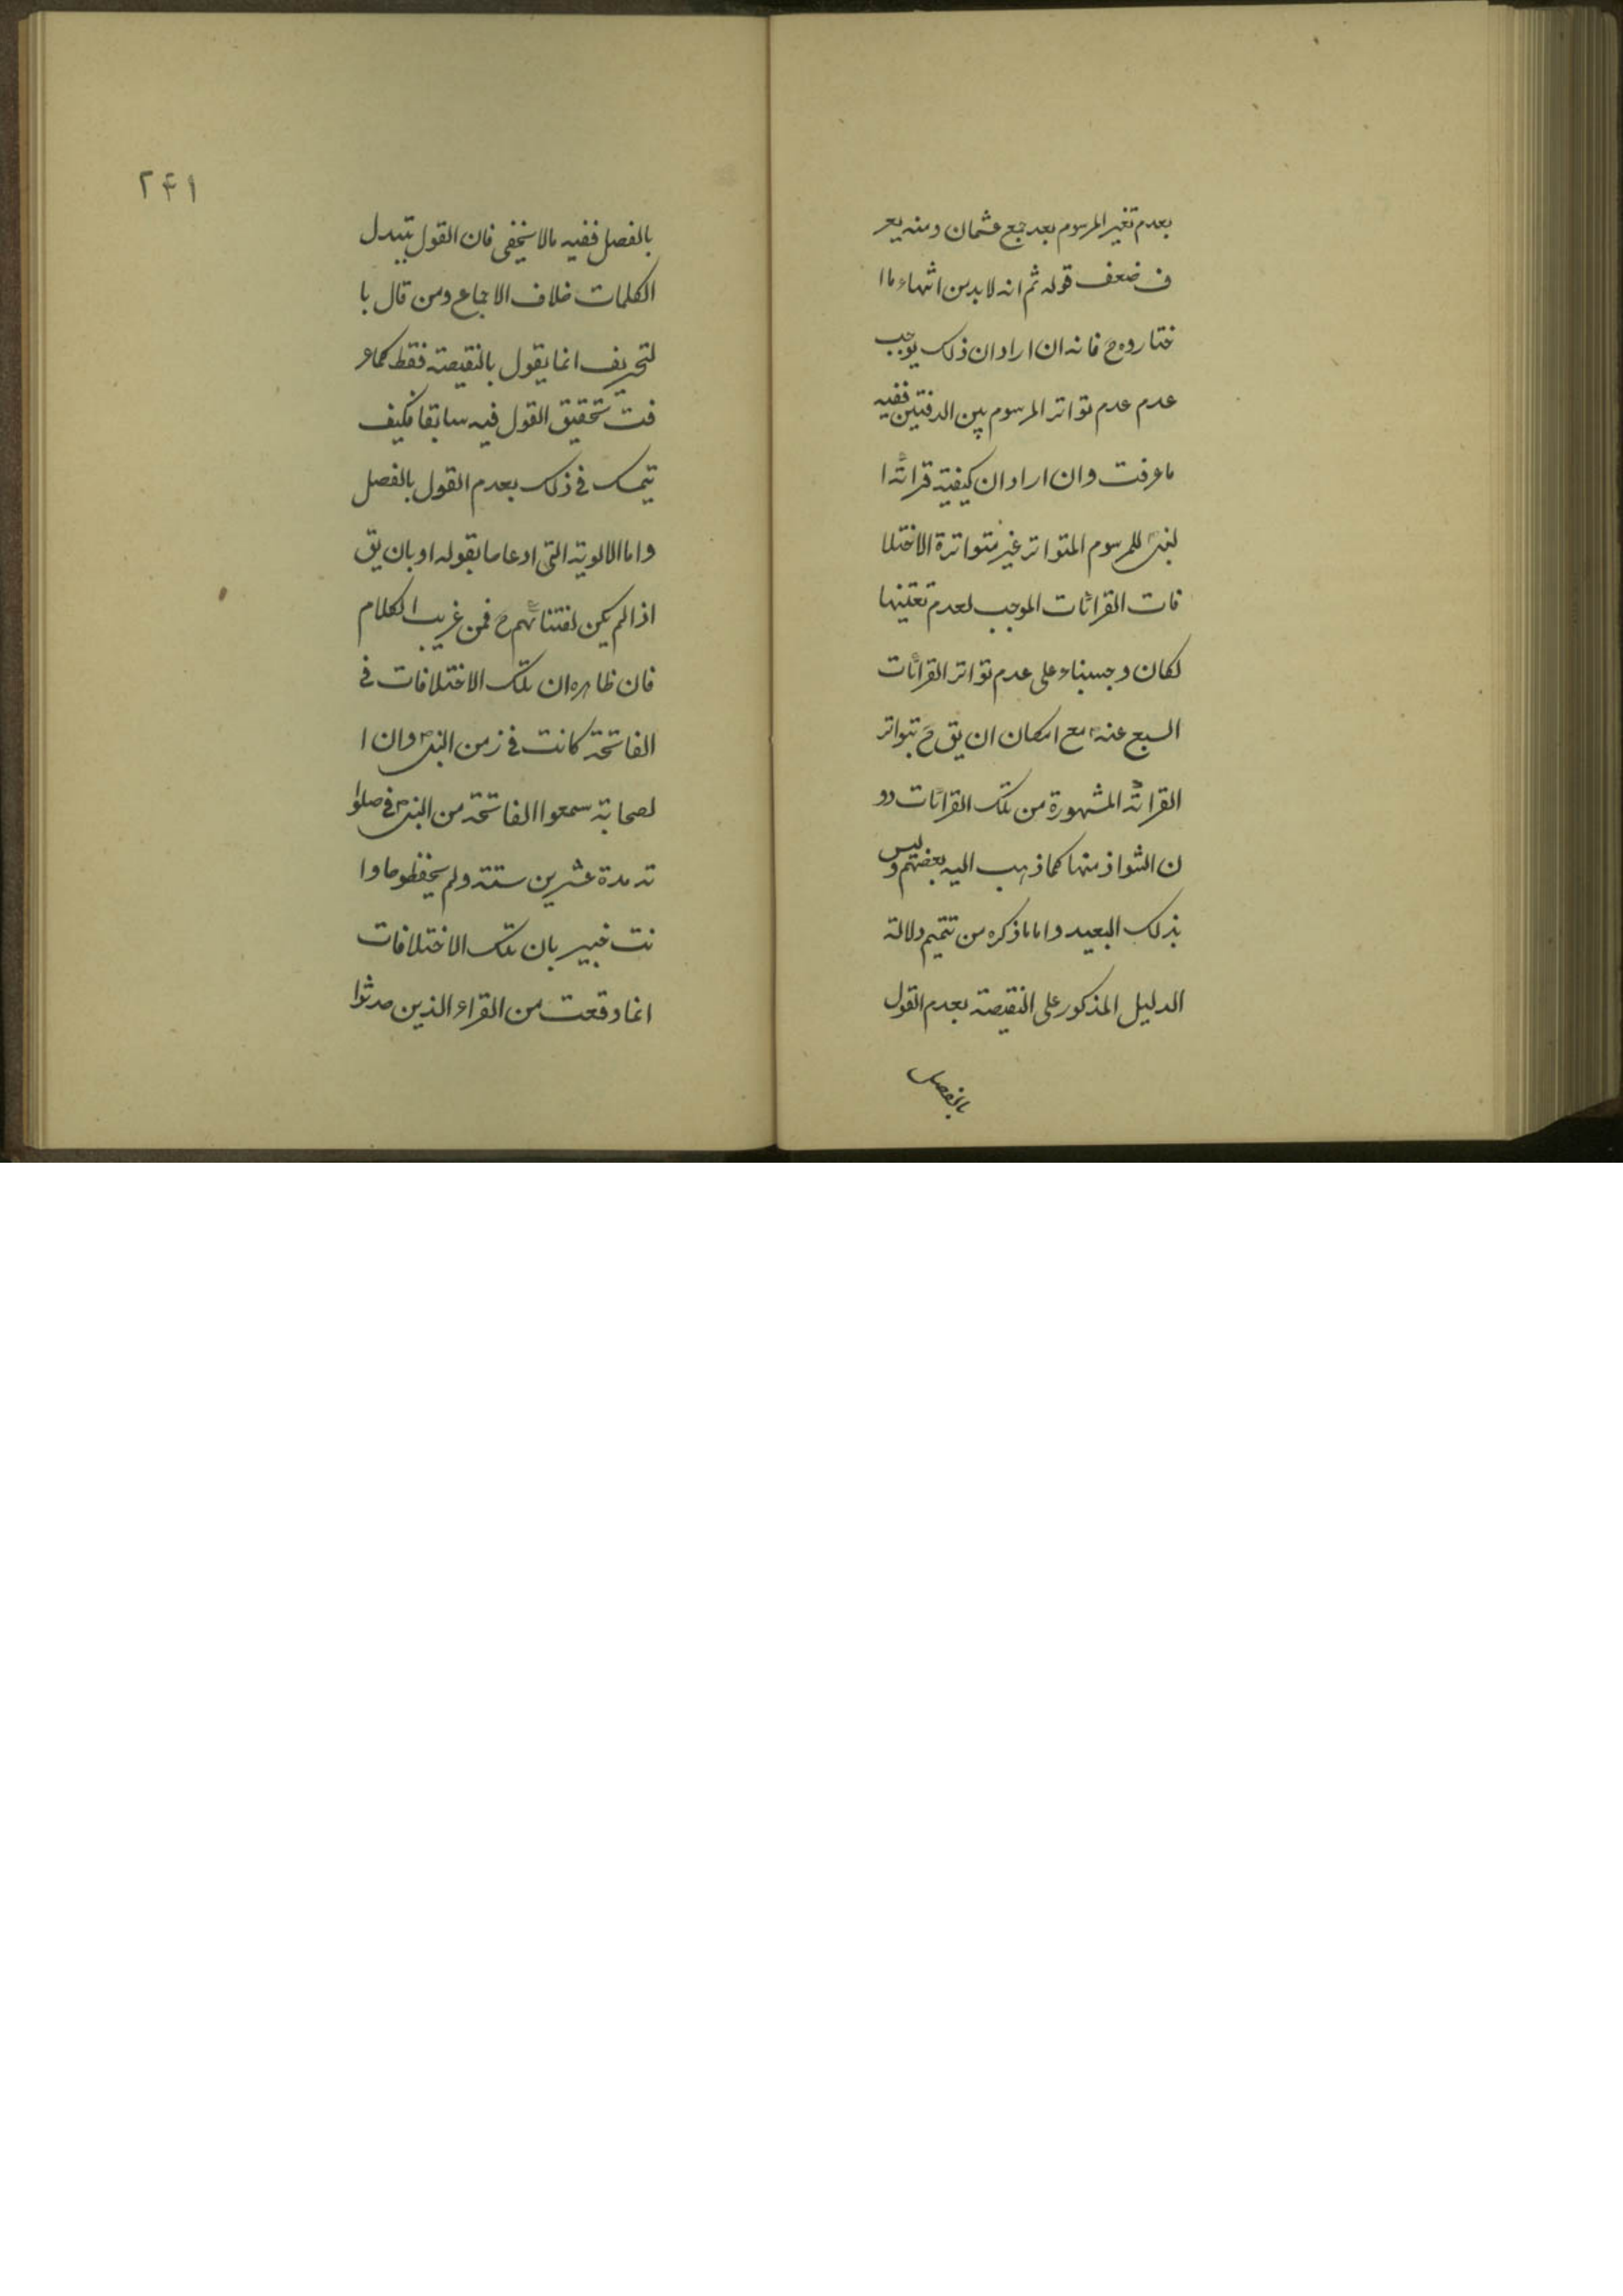 بعدم تغير المرسوم بعد جمع عثمان ومنه يعر
ف ضعف قوله ثم انه لا بد من انتهاء ما ا
ختاروه ح فانه ان اراد ان ذلك يوجب
عدم عدم تواتر المرسوم بين الدفتين ففيه
ما عرفت وان اراد ان كيفية قرائة ا
لنبى للمرسوم المتواتر غير متواترة الاختلا
فات القرائات الموجب لعدم تعيينها
لكان وجيها بناء على عدم تواتر القرائات
السبع عنه مع امكان ان يق ح بتواتر
القرائة المشهورة من تلك القرائات دو
ن الشواذ منها كما ذهب اليه بعضهم وليس
بذلك البعيد واما ما ذكره من تتميم دلالة
الدليل المذكور على النقيصة بعدم القول
بالفصل
٢۴١
بالفصل ففيه ما لا يخفى فان القول بتبدل
الكلمات خلاف الاجماع ومن قال با
لتحريف انما يقول بالنقيصة فقط كما عر
فت تحقيق القول فيه سابقا فكيف
يتمسك فى ذلك بعدم القول بالفصل
واما الالوية التى ادعاها بقوله او بان يق
اذا لم يكن ح فمن غريب الكلام
فان ظاهره ان تلك الاختلافات فى
الفاتحة كانت فى زمن النبى وان ا
لصحابة سمعوا الفاتحة من النبى فى صلوا
ته مدة عشرين سنة ولم يحفظوها وا
نت خبير بان تلك الاختلافات
انما وقعت من القراء الذين حدثوا